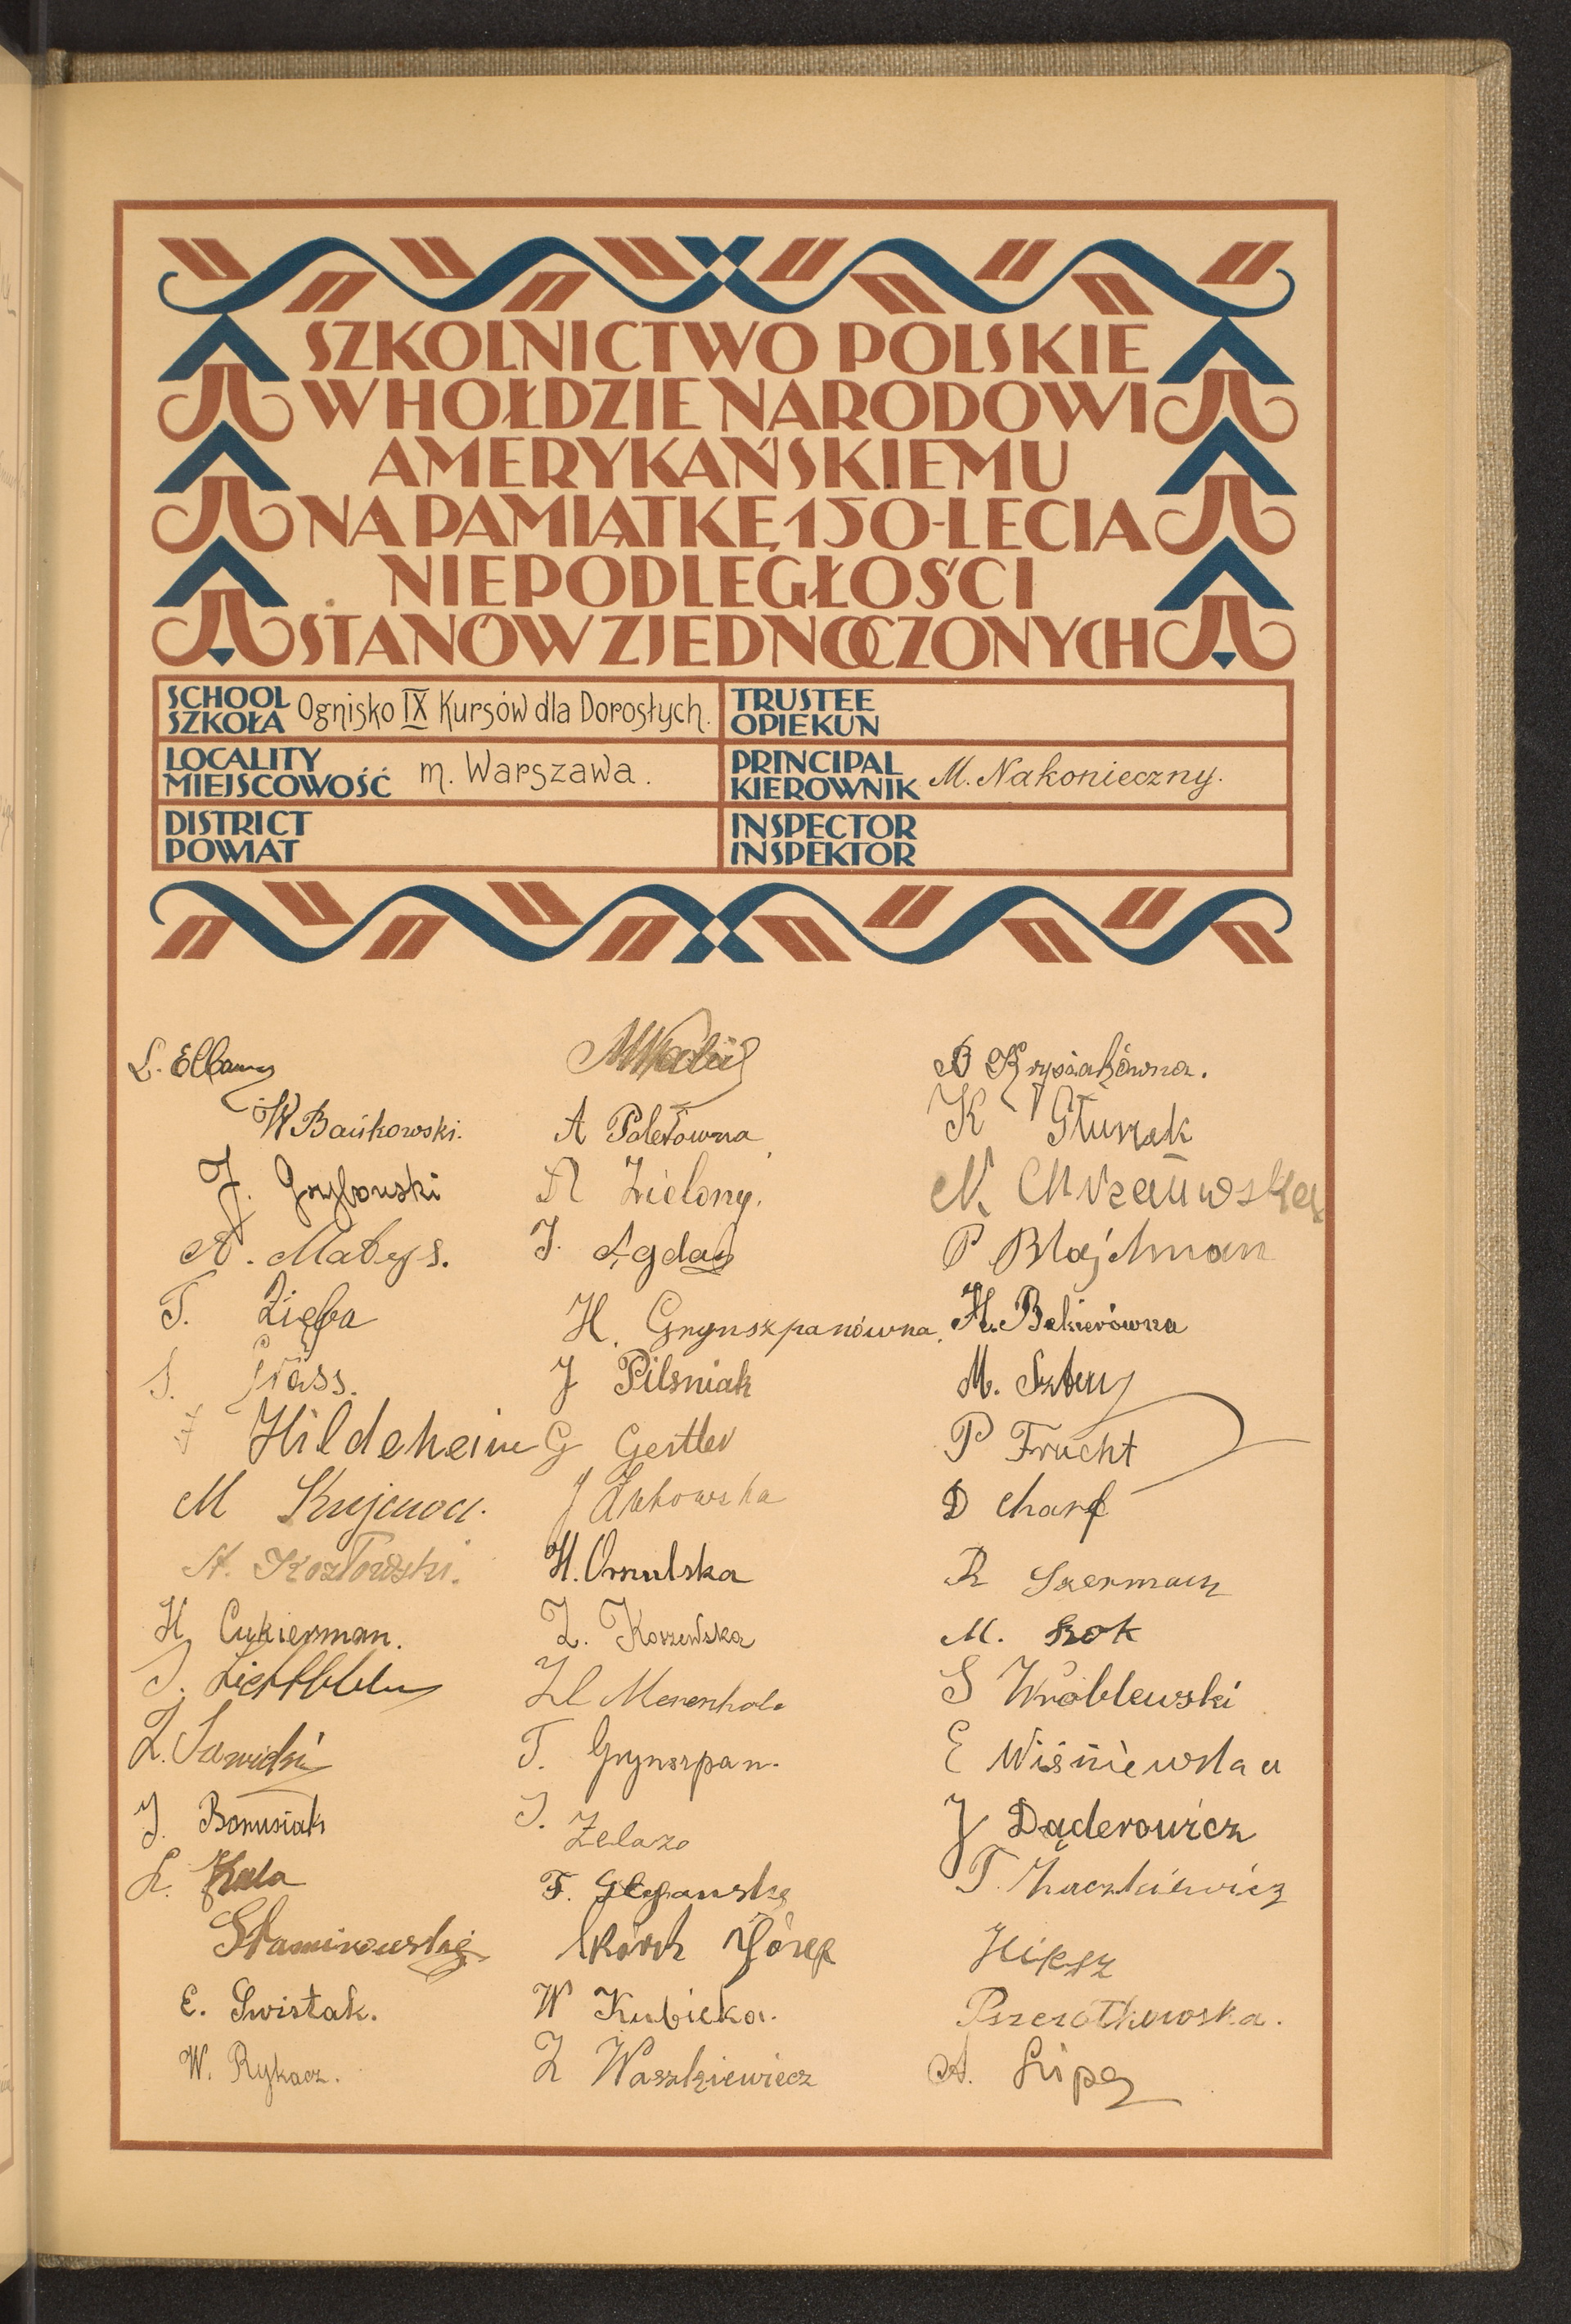 SZKOLNICTWO POLSKIE
W HOŁDZIE NARODOWI
AMERYKAŃSKIEMU
NA PAMIĄTKĘ 150-LECIA
NIEPODLEGŁOŚCI
STANÓW ZJEDNOCZONYCH
SCHOOL
SZKOŁA Ognisko IX Kursów dla Dorosłych.
TRUSTEE
OPIEKUN
LOCALITY
MIEJSCOWOŚĆ m. Warszawa.
PRINCIPAL
KIEROWNIK M. Nakonieczny.
DISTRICT
POWIAT
INSPECTOR
INSPEKTOR
L.
W Bańkowski.
J. Grzybowski
A. Matys.
T. Zięba
S. Grass.
Hildeheim
M
A. Kozłowski.
H Cukierman.
J.
Z. Sawicki
J. Banusiak
L. Kala
E. Świstak.
W. Rykacz.
A Poletowna
A Zielony.
J.
H. Grynszpanówna.
J Pilśniak
G Gertler
J Żukowska
H. Osmulska
Z. Koszewska
T. Grynszpan.
J. Żelazo
F.
Józef
W Kubicka.
Z Waszkiewicz
B Krysiakówna.
K Głuszak
N. Chrzanowska
P Blajchman
H. Bekierówna
M.
P Frucht
D Charf
R Szermach
M. Szok
S Wróblewski
E Wiśniewska
J Dąderowicz
T.
Pszczółkowska.
A. Lipa